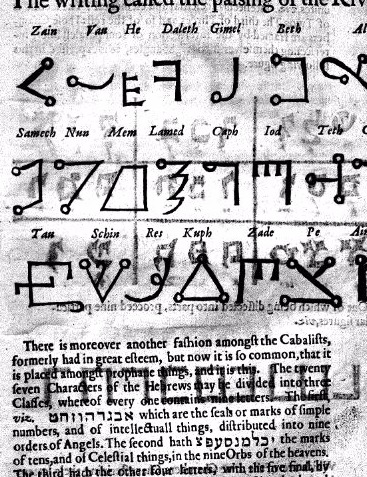 The writing called the paſsing of the Riv
Zain Vau He Daleth Gimel Beth Al
Samech Nun Mem Lamed Caph Iod Teth C
Tau Schin Res Kuph Zade Pe Ai
There is moreover another faſhion amongſt the Cabaliſts,
formerly had in great eſteem, but now it is ſo common, that it
is placed amongſt prophane things, and it is this. The twenty
ſeven Characters of the Hebrews may be divided into three
Claſſes, whereof every one contains nine letters. The firſt,
viz. אבגדהוזחט which are the ſeals or marks of ſimple
numbers, and of intellectuall things, diſtributed into nine
orders of Angels. The ſecond hath יכלמנסעפצ the marks
of tens, and of Celeſtial things, in the nine Orbs of the heavens.
The third hath the other four letters, with the five final, by